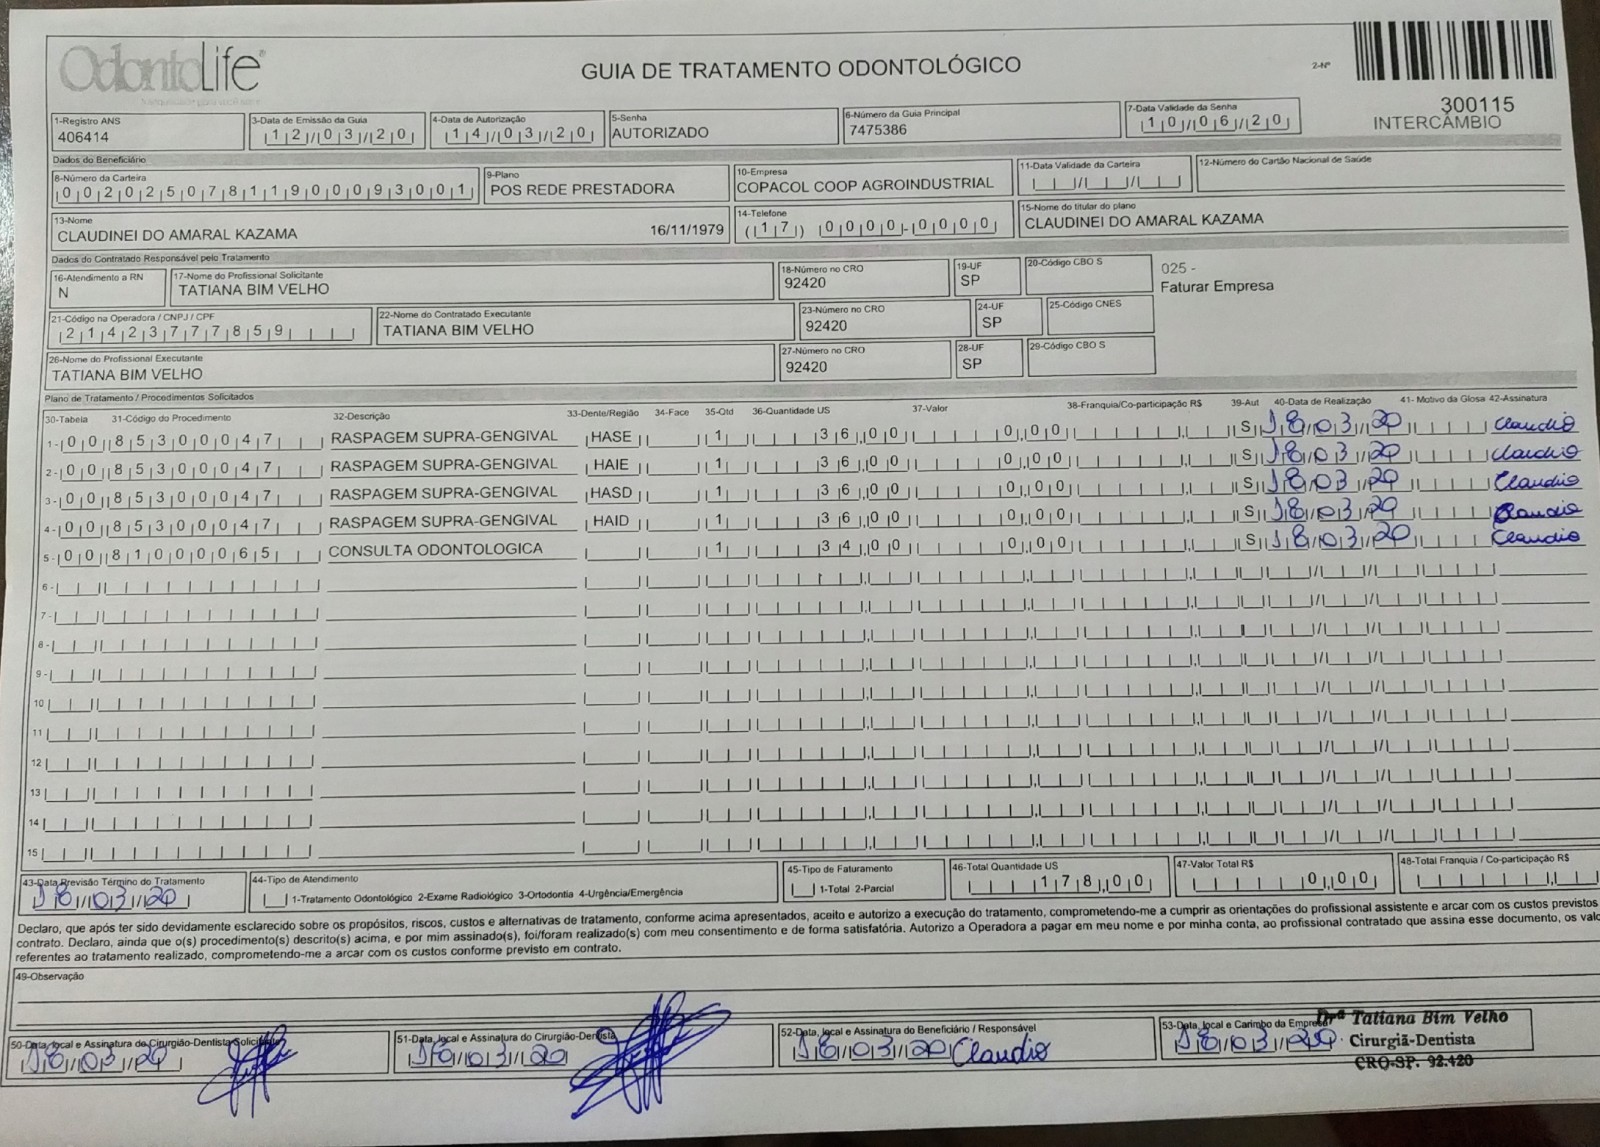 OdontoLife®
GUIA DE TRATAMENTO ODONTOLÓGICO
2-Nº
300115
INTERCÂMBIO
1-Registro ANS
406414
3-Data de Emissão da Guia
12/03/20
4-Data de Autorização
14/03/20
5-Senha
AUTORIZADO
6-Número da Guia Principal
7475386
7-Data Validade da Senha
10/06/20
Dados do Beneficiário
8-Número da Carteira
00202507811900093001
9-Plano
POS REDE PRESTADORA
10-Empresa
COPACOL COOP AGROINDUSTRIAL
11-Data Validade da Carteira
12-Número do Cartão Nacional de Saúde
13-Nome
CLAUDINEI DO AMARAL KAZAMA 16/11/1979
14-Telefone
(17) 0000-0000
15-Nome do titular do plano
CLAUDINEI DO AMARAL KAZAMA
Dados do Contratado Responsável pelo Tratamento
16-Atendimento a RN
N
17-Nome do Profissional Solicitante
TATIANA BIM VELHO
18-Número no CRO
92420
19-UF
SP
20-Código CBO S
025 -
Faturar Empresa
21-Código na Operadora / CNPJ / CPF
21423777859
22-Nome do Contratado Executante
TATIANA BIM VELHO
23-Número no CRO
92420
24-UF
SP
25-Código CNES
26-Nome do Profissional Executante
TATIANA BIM VELHO
27-Número no CRO
92420
28-UF
SP
29-Código CBO S
Plano de Tratamento / Procedimentos Solicitados
30-Tabela 31-Código do Procedimento 32-Descrição 33-Dente/Região 34-Face 35-Qtd 36-Quantidade US 37-Valor 38-Franquia/Co-participação R$ 39-Aut 40-Data de Realização 41- Motivo da Glosa 42-Assinatura
1- 00 85300047 RASPAGEM SUPRA-GENGIVAL HASE 1 36,00 0,00 S 18/03/20 Claudio
2- 00 85300047 RASPAGEM SUPRA-GENGIVAL HAIE 1 36,00 0,00 S 18/03/20 Claudio
3- 00 85300047 RASPAGEM SUPRA-GENGIVAL HASD 1 36,00 0,00 S 18/03/20 Claudio
4- 00 85300047 RASPAGEM SUPRA-GENGIVAL HAID 1 36,00 0,00 S 18/03/20 Claudio
5- 00 81000065 CONSULTA ODONTOLOGICA 1 34,00 0,00 S 18/03/20 Claudio
6-
7-
8-
9-
10
11
12
13
14
15
43-Data Previsão Término do Tratamento
18/03/20
44-Tipo de Atendimento
1-Tratamento Odontológico 2-Exame Radiológico 3-Ortodontia 4-Urgência/Emergência
45-Tipo de Faturamento
1-Total 2-Parcial
46-Total Quantidade US
178,00
47-Valor Total R$
0,00
48-Total Franquia / Co-participação R$
Declaro, que após ter sido devidamente esclarecido sobre os propósitos, riscos, custos e alternativas de tratamento, conforme acima apresentados, aceito e autorizo a execução do tratamento, comprometendo-me a cumprir as orientações do profissional assistente e arcar com os custos previstos
contrato. Declaro, ainda que o(s) procedimento(s) descrito(s) acima, e por mim assinado(s), foi/foram realizado(s) com meu consentimento e de forma satisfatória. Autorizo a Operadora a pagar em meu nome e por minha conta, ao profissional contratado que assina esse documento, os valo
referentes ao tratamento realizado, comprometendo-me a arcar com os custos conforme previsto em contrato.
49-Observação
50-Data, local e Assinatura do Cirurgião-Dentista Solicitante
18/03/20
51-Data, local e Assinatura do Cirurgião-Dentista
18/03/20
52-Data, local e Assinatura do Beneficiário / Responsável
18/03/20 Claudio
53-Data, local e Carimbo da Empresa
18/03/20
Drª Tatiana Bim Velho
Cirurgiã-Dentista
CRO-SP. 92.420